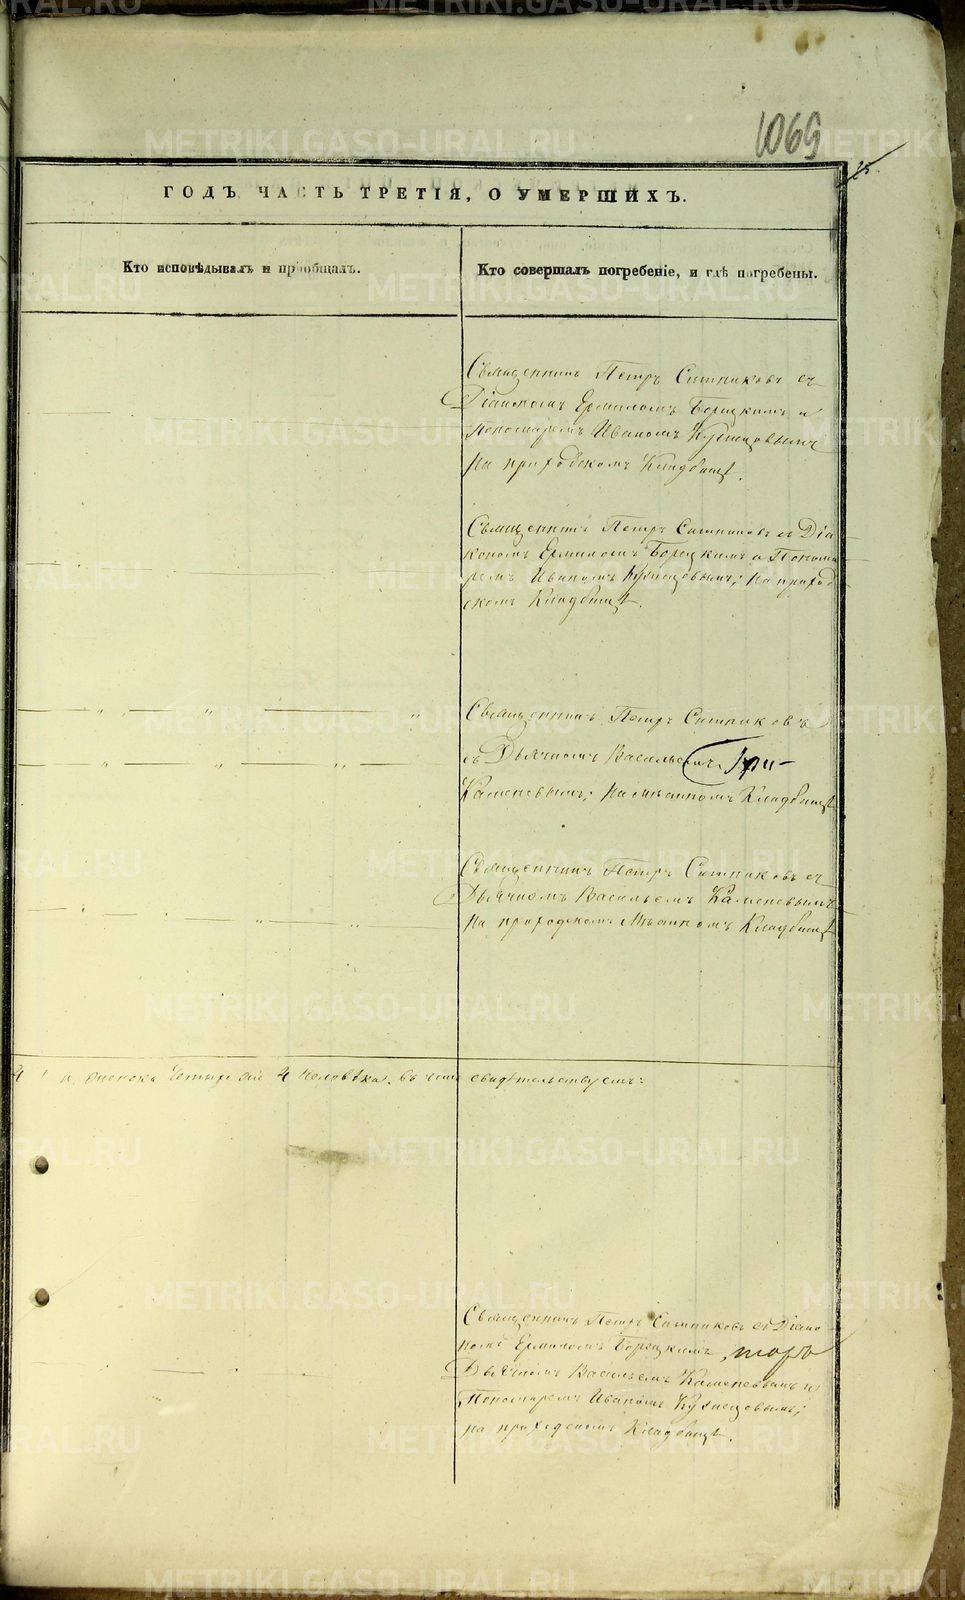 1069
25.
ГОДЪ ЧАСТЬ ТРЕТІЯ, О УМЕРШИХЪ.
Кто исповѣдывалъ и пріобщалъ.
Кто совершалъ погребеніе, и гдѣ погребены.
Священникъ Петръ Ситниковъ съ
Діакономъ Ермиломъ Борецкимъ и
Пономаремъ Иваномъ Кузнецовымъ
На приходскомъ Кладбищѣ.
Священникъ Петръ Ситниковъ съ Діа
кономъ Ермиломъ Борецкимъ и Понома
ремъ Иваномъ Кузнецовымъ; на приход
скомъ Кладбищѣ.
Священникъ Петръ Ситниковъ
съ Дьячкомъ Васильемъ
Каменевымъ; На мѣстномъ Кладбищѣ
Священникъ Петръ Ситниковъ съ
Дьячкомъ Васильемъ Каменевымъ
На приходскомъ Мѣстномъ Кладбищѣ
женска четыре 4 человѣка. въ чемъ свидѣтельствуемъ:
Священникъ Петръ Ситниковъ съ Діако
номъ Ермиломъ Борецкимъ,
Дьячкомъ Васильемъ Каменевымъ и
Пономаремъ Иваномъ Кузнецовымъ;
на приходскомъ Кладбищѣ.
METRIKI.GASO-URAL.RU